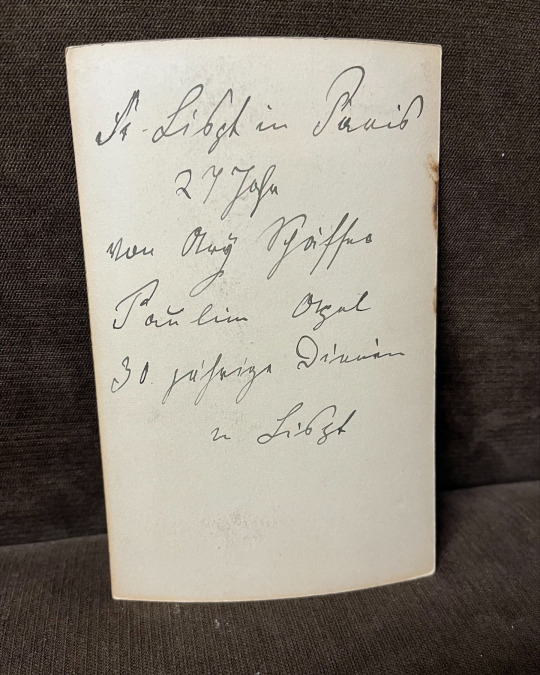 Fr. Liszt in Paris
27 Jahr
von Ary Schäffer
Paulin Apel
30 jährige Dienerin
v Liszt